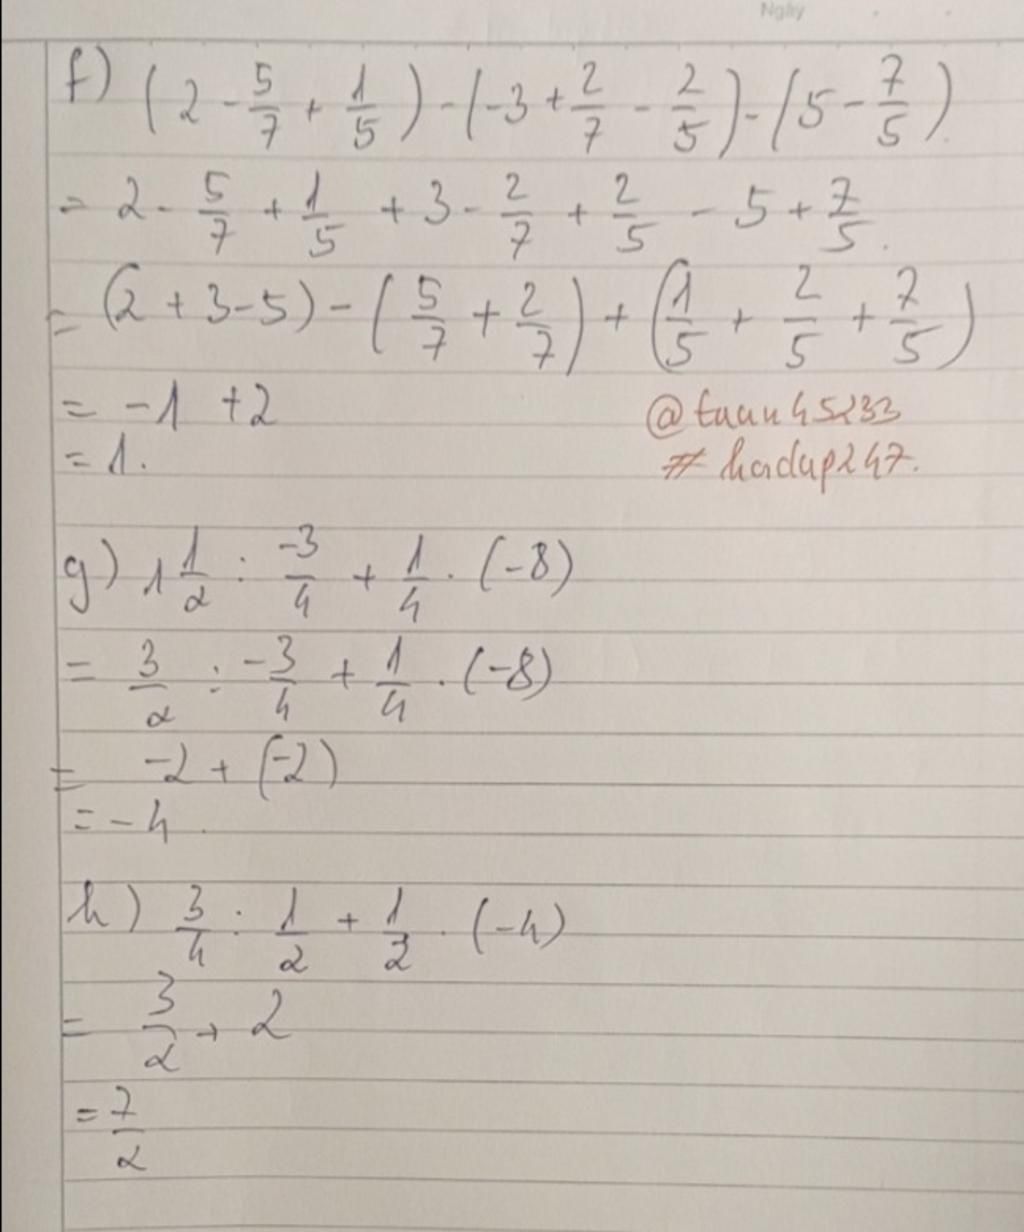 Ngày
f) (2 - 5/7 + 1/5) - (-3 + 2/7 - 2/5) - (5 - 7/5)
= 2 - 5/7 + 1/5 + 3 - 2/7 + 2/5 - 5 + 7/5.
= (2 + 3 - 5) - (5/7 + 2/7) + (1/5 + 2/5 + 7/5)
= -1 + 2
= 1.
@tuan45233
# hoidap247.
g) 1 1/2 : -3/4 + 1/4 . (-8)
= 3/2 : -3/4 + 1/4 . (-8)
= -2 + (-2)
= -4.
h) 3/4 : 1/2 + 1/2 . (-4)
= 3/2 + 2
= 7/2